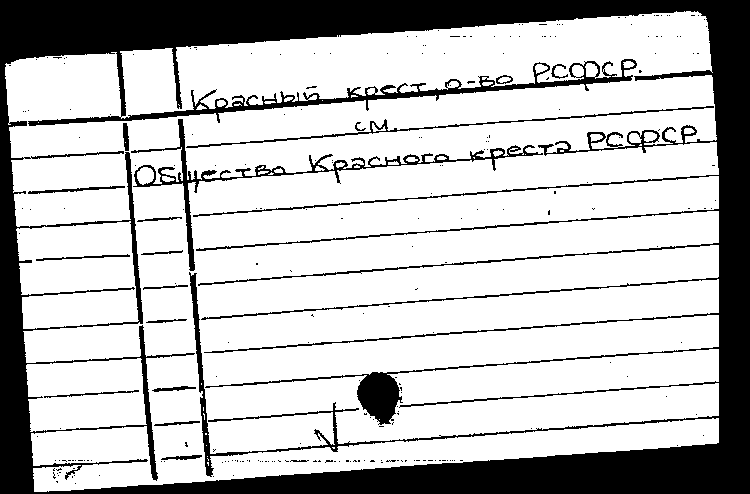 Красный крест, о-во РСФСР.
см.
Общество Красного креста РСФСР.